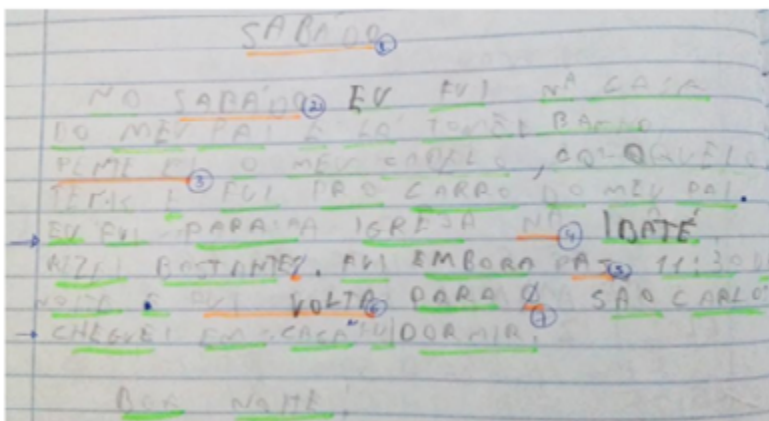 SABÁDO 1
NO SABÁDO 2 EU FUI NA CASA
DO MEU PAI E LA TOMEI BANHO
PENTEEI 3 O MEU CABELO, COLOQUEI O
TENIS E FUI PRO CARRO DO MEU PAI.
→ EU FUI PARA A IGREJA NA 4 IBATÉ
REZEI BASTANTE. FUI EMBORA 5 11:30 DA
NOITE E FUI VOLTA 6 PARA 7 SÃO CARLO
→ CHEGUEI EM CASA FUI DORMIR.
BOA NOITE